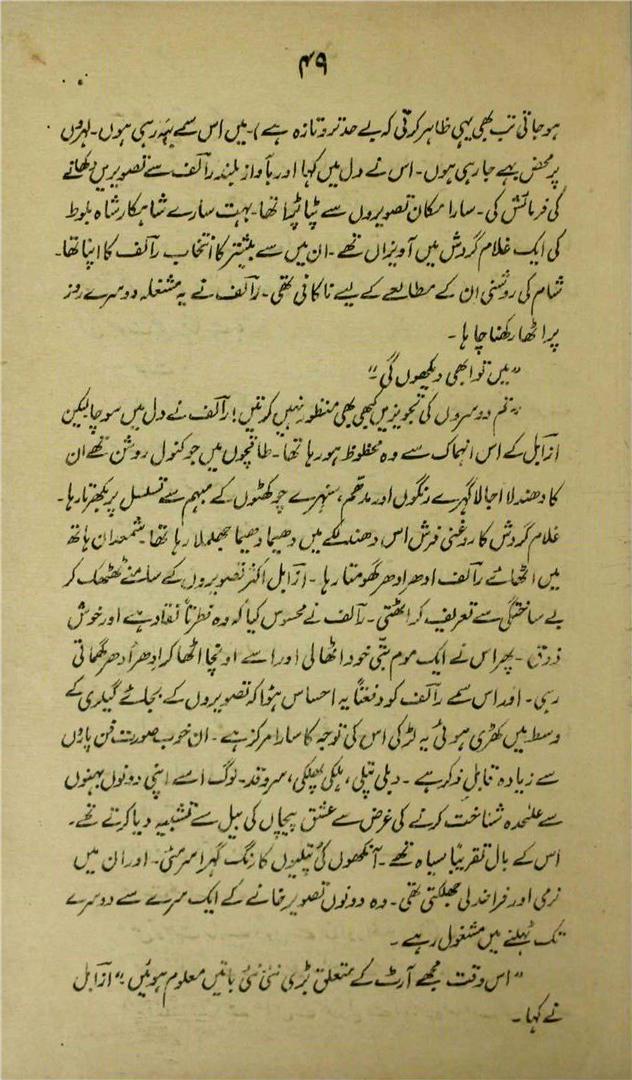 ۴۹
ہو جاتی تب بھی یہی ظاہر کرتی کہ بے حد تر و تازہ ہے)۔ میں اس سمے بہہ رہی ہوں۔ لہروں
پر محض بہے جا رہی ہوں۔ اس نے دل میں کہا اور بآواز بلند رآلف سے تصویریں دکھانے
کی فرمائش کی۔ سارا مکان تصویروں سے پٹا پڑا تھا۔ بہت سارے شاہکار شاہ بلوط
کی ایک غلام گردش میں آویزاں تھے۔ ان میں سے بیشتر کا انتخاب رآلف کا اپنا تھا۔
شام کی روشنی ان کے مطالعے کے لیے ناکافی تھی۔ رآلف نے یہ مشغلہ دوسرے روز
پر اٹھا رکھنا چاہا۔
”میں تو ابھی دیکھوں گی“
”تم دوسروں کی تجویزیں کبھی بھی منظور نہیں کرتیں! رآلف نے دل میں سوچا لیکن
ازآبل کے اس انہماک سے وہ محظوظ ہو رہا تھا۔ طاقچوں میں جو کنول روشن تھے ان
کا دھندلا اجالا گہرے رنگوں اور مدھم، سنہرے چوکھٹوں کے مبہم سے تسلسل پر بکھرتا رہا۔
غلام گردش کا روغنی فرش اس دھندلکے میں دھیما دھیما جھلملا رہا تھا۔ شمعدان ہاتھ
میں اٹھائے رآلف ادھر ادھر گھومتا رہا۔ ازآبل اکثر تصویروں کے سامنے ٹھٹھک کر
بے ساختگی سے تعریف کر اٹھتی۔ رآلف نے محسوس کیا کہ وہ فطرتاً نقاد ہے اور خوش
ذوق۔ پھر اس نے ایک موم بتی خود اٹھا لی اور اسے اونچا اٹھا کر ادھر اُدھر گھماتی
رہی۔ اور اس سمے رآلف کو دفعتاً یہ احساس ہوا کہ تصویروں کے بجائے گیلری کے
وسط میں کھڑی ہوئی یہ لڑکی اس کی توجہ کا سارا مرکز ہے۔ ان خوب صورت فن پاروں
سے زیادہ قابلِ ذکر ہے۔ دبلی پتلی، ہلکی پھلکی، سرو قد۔ لوگ اسے اپنی دونوں بہنوں
سے علیحدہ شناخت کرنے کی غرض سے عشق پیچاں کی بیل سے تشبیہہ دیا کرتے تھے۔
اس کے بال تقریباً سیاہ تھے۔ آنکھوں کی پتلیوں کا رنگ گہرا سرمئی۔ اور ان میں
نرمی اور فراخدلی جھلکتی تھی۔ وہ دونوں تصویر خانے کے ایک سرے سے دوسرے
تک ٹہلنے میں مشغول رہے۔
”اس وقت مجھے آرٹ کے متعلق بڑی نئی نئی باتیں معلوم ہوئیں“ ازآبل
نے کہا۔